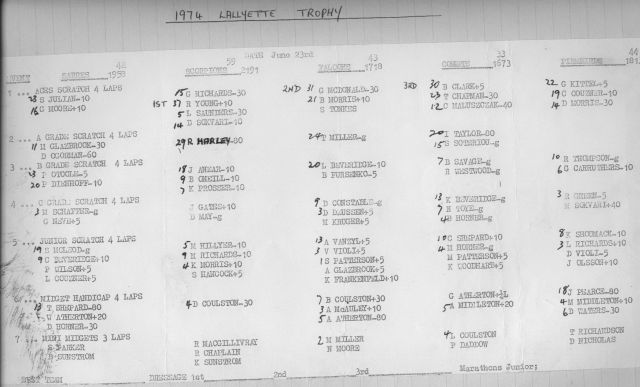 1974 LALLYETTE TROPHY
DATE June 23rd
42 59 43 33 44
EVENT SABRES 1958 SCORPIONS 2191 FALCONS 1718 COMETS 1673 181
1 ... ACES SCRATCH 4 LAPS 15 G RICHARDS-30 2ND 31 G MCDONALD-30 3RD 30 B CLARK+5 22 G KITTEL+5
23 S JULIAN+10 1ST 37 R YOUNG+10 21 B MORRIS+10 23 T CHAPMAN-30 19 C COUZNER-10
16 C MOORE+10 5 L SAUNDERS-30 S TONKES 12 C MALUSZCZAK-40 14 D MORRIS-30
14 D SOKVARI-10
2 ... A GRADE SCRATCH 4 LAPS 29 R HARLEY-80 24 T MILLER-g 20 I TAYLOR-80
11 M GLAZBROOK-30 15 S SOTERIOU-g
D OGORMAN-60
3 ... B GRADE SCRATCH 4 LAPS 18 J ANEAR-10 20 L BEVERIDGE-10 7 B SAVAGE-g 10 R THOMPSON-g
13 P OTOOLE-5 9 B ONEILL-10 B FURSENKO-5 R WESTWOOD-g 6 G CARRUTHERS-10
20 P DIENHOFF-10 7 K PROSSER-10
4 C GRADE SCRATCH 4 LAPS J GATHS+10 9 D CONSTABLE-g 13 K BEVERIDGE-g 3 R GREEN-5
3 M SCHAFFER-g D MAY-g 3 D DAUSSEN+5 7 H TOYE-g M SOKVARI+40
G NEVE+5 M KRUGER+5 4 B HORNER-g
5 ... JUNIOR SCRATCH 4 LAPS 5 M HILLYER-10 13 A VANZYL+5 10 C SHEPARD+10 8 K SHOUMACK-10
19 S MCLEOD-g 9 M RICHARDS-10 3 V VIOLI+5 4 M HORNER-g 3 L RICHARDS+10
9 C BEVERIDGE+10 4 K MORRIS+10 1 S PATTERSON+5 M PATTERSON+5 D VIOLI-5
P WILSON+5 S HANCOCK+5 A GLAZBROOK+5 K GOODHART+5 J OLSSON+10
L COUZNER+5 K FRANKENFELD+10
6 ... MIDGET HANDICAP 4 LAPS 4 D COULSTON-30 7 B COULSTON+30 G ATHERTON+½L 18 J PEARCE-80
13 T SHEPARD-80 3 A McAULEY+10 5 A MIDDLETON+20 4 M MIDDLETON+10
W ATHERTON+20 5 A ATHERTON-80 6 D WATERS-30
D HORNER-30
7 ... MINI MIDGETS 3 LAPS R MACGILLIVRAY 2 M MILLER 4 L COULSTON T RICHARDSON
S PARKER R CHAPLAIN N MOORE P DADDOW D NICHOLAS
B SUNSTROM K SUNSTROM
BEST TEAM DRESSAGE 1st 2nd 3rd Marathons Junior;